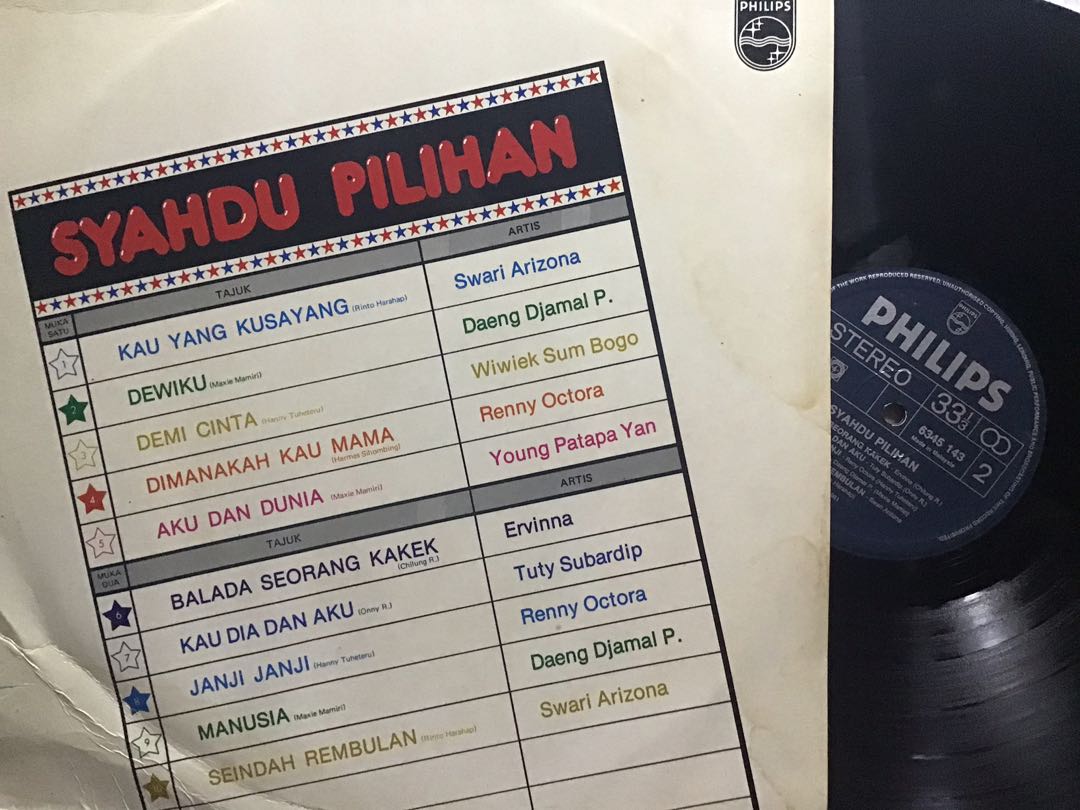 PHILIPS
SYAHDU PILIHAN
TAJUK
ARTIS
MUKA SATU
1 KAU YANG KUSAYANG (Rinto Harahap) Swari Arizona
2 DEWIKU (Maxie Mamiri) Daeng Djamal P.
3 DEMI CINTA (Hanny Tuheteru) Wiwiek Sum Bogo
4 DIMANAKAH KAU MAMA (Hermes Sihombing) Renny Octora
5 AKU DAN DUNIA (Maxie Mamiri) Young Patapa Yan
MUKA DUA
TAJUK
ARTIS
6 BALADA SEORANG KAKEK (Chilung R.) Ervinna
7 KAU DIA DAN AKU (Onny R.) Tuty Subardip
8 JANJI JANJI (Hanny Tuheteru) Renny Octora
9 MANUSIA (Maxie Mamiri) Daeng Djamal P.
10 SEINDAH REMBULAN (Rinto Harahap) Swari Arizona
OF THE WORK REPRODUCED RESERVED. UNAUTHORISED COPYING,
PHILIPS
STEREO
33 1/3
6345 143
Made in Malaysia
2
SYAHDU PILIHAN
SEORANG KAKEK - Ervinna (Chilung R.)
DAN AKU - Tuty Subardip (Onny R.)